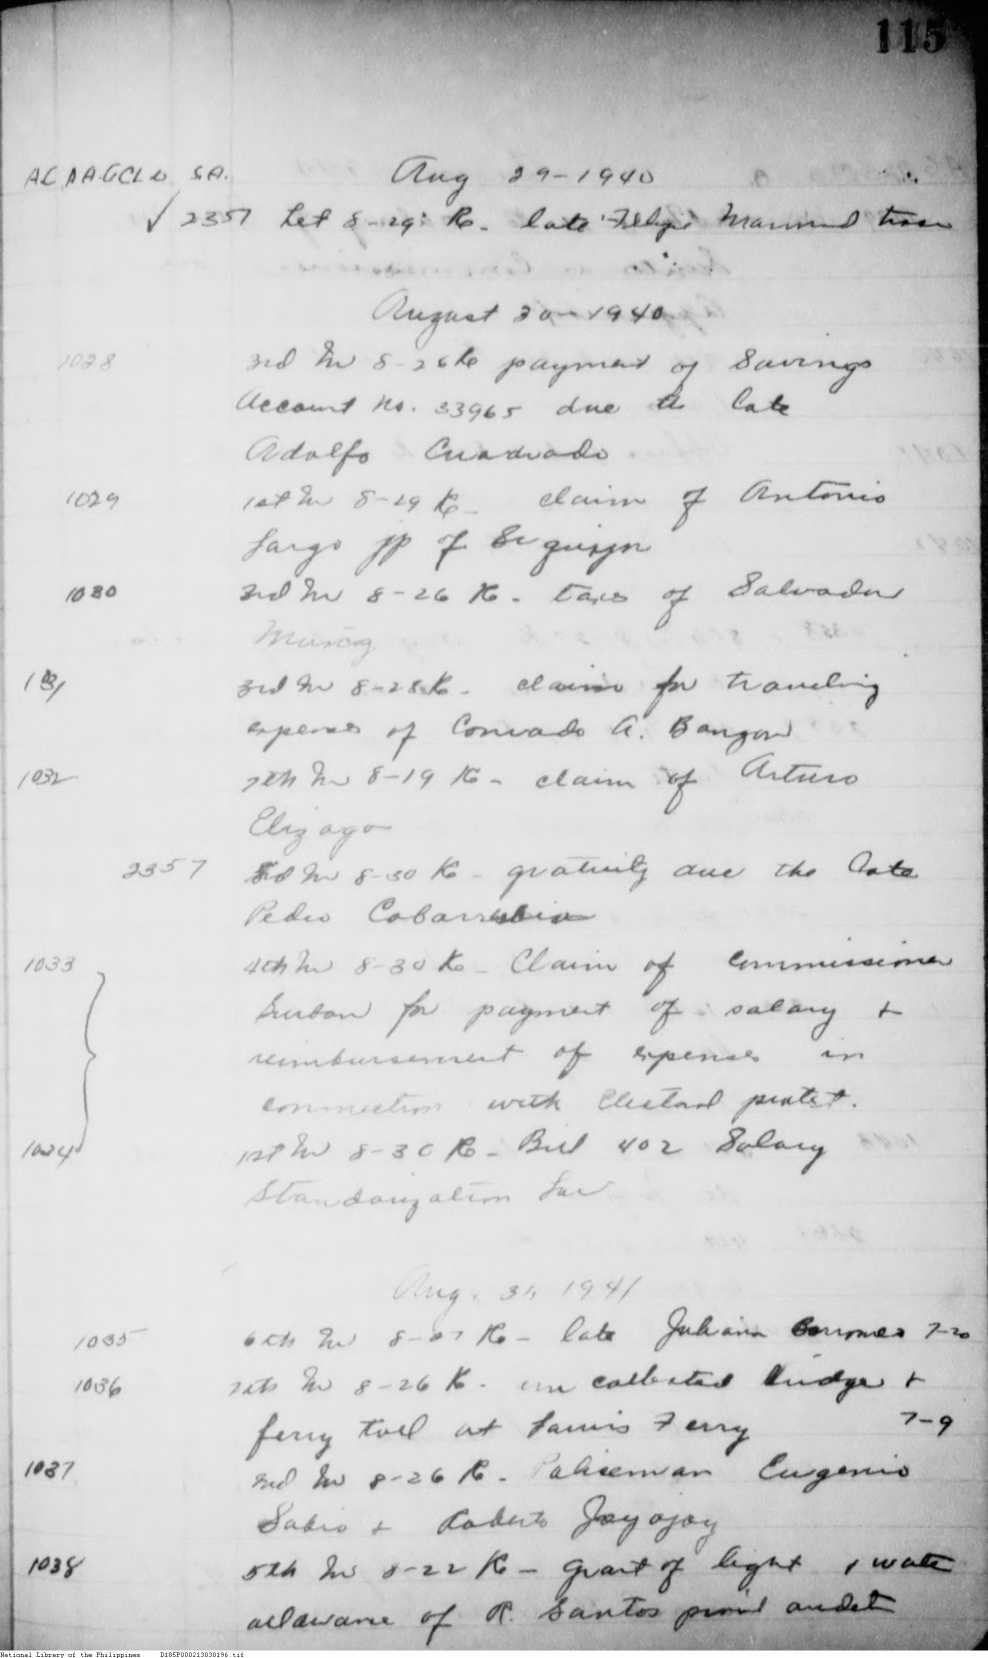 115
Aug 29-1940
✓ 2357 Let 8-29 K. late Felipe
August 30-1940
1028 3rd In 8-26 K payment of Savings
Account No. 33965 due to late
Adolfo Cuadrado
1029 1st In 8-29 K - claim of Antonio
Largo jp of
1030 3rd In 8-26 K - taxes of Salvador
1031 3rd In 8-28 K - claim for traveling
expenses of Conrado A. Bangon
1032 7th In 8-19 K - claim of Arturo
Elizaga
2357 3rd In 8-30 K - gratuity due the late
Pedro Cobarrubia
1033 4th In 8-30 K - Claim of Commissioner
for payment of salary +
reimbursement of expenses in
connection with Electoral protest.
1034 1st In 8-30 K - Bill 402 Salary
Standarization Law
Aug. 31, 1941
1035 6th In 8-27 K - late Juliana 7-20
1036 7th In 8-26 K - un collected bridge +
ferry toll at Ferry 7-9
1037 3rd In 8-26 K - Policeman Eugenio
Sabio + Roberto Jayojoy
1038 5th In 8-22 K - Grant of light + water
allowance of R. Santos
National Library of the Philippines D185P000213030196.tif